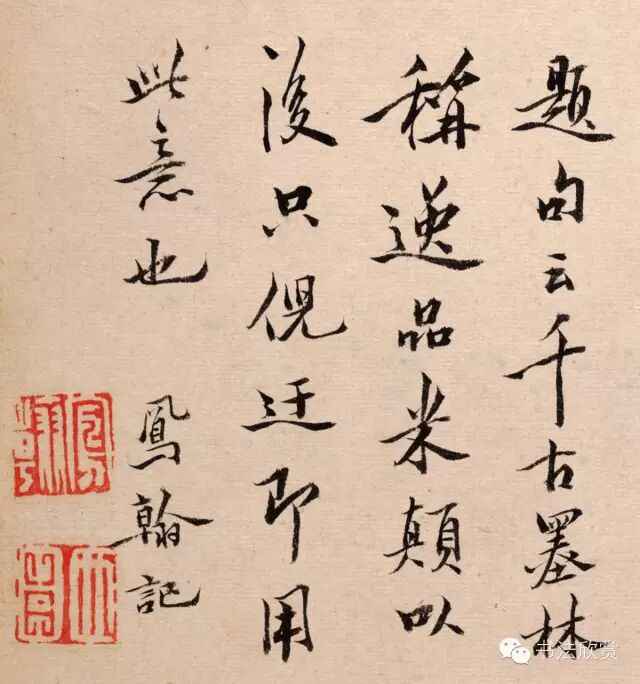 題句云千古墨林
稱逸品米顛以
後只倪迂即用
此意也
鳳翰記
书法欣赏